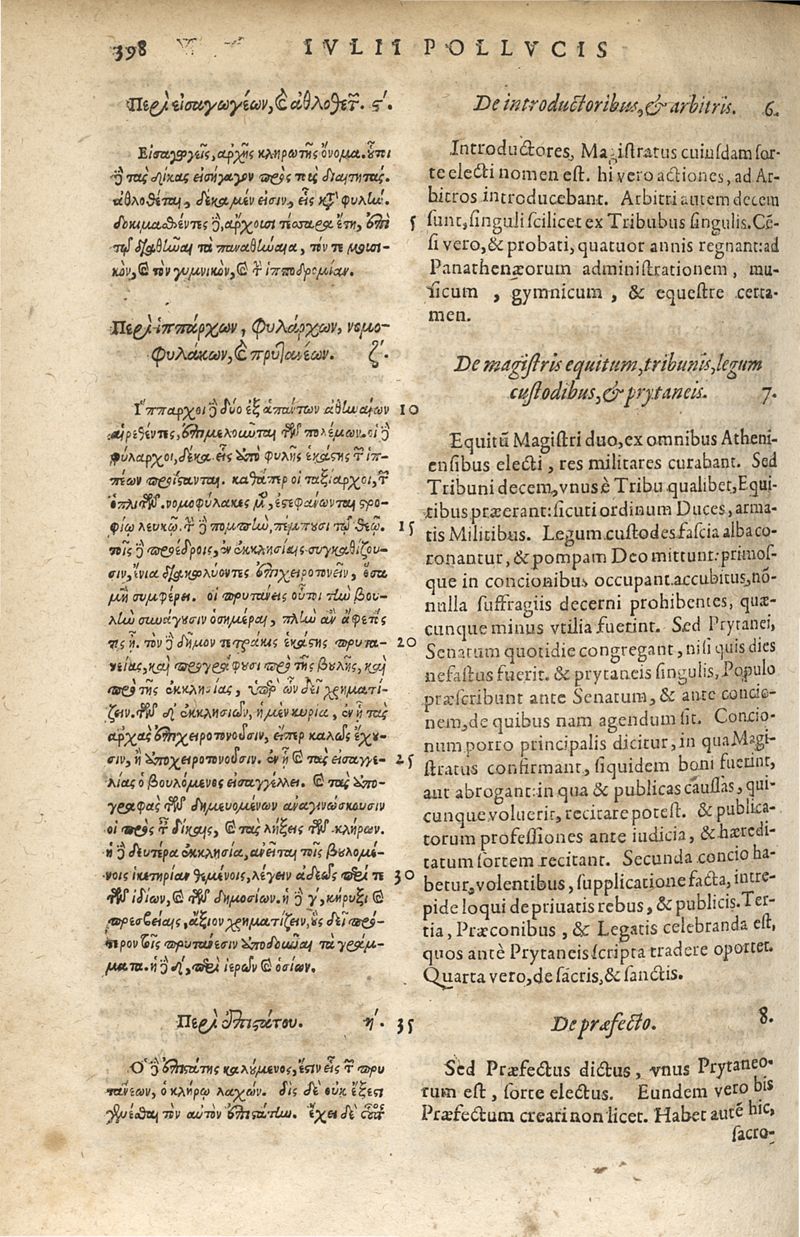 398 IVLII POLLVCIS
Περὶ εἰσαγωγέων, & ἀθλοθετ. ϛʹ.
Εἰσαγωγεῖς, ἀρχῆς κληρωτῆς ὄνομα. οὗτοι
δὲ τὰς δίκας εἰσῆγαγον πρὸς τοὺς διαιτητάς.
ἀθλοθέται, δέκα μέν εἰσιν, εἷς κατ φυλίω.
δοκιμασθέντες δὲ, ἄρχουσι τέσσαρα ἔτη, ἐπὶ
τῷ διαθῶαι τὰ παναθώαια, τόν τε μουσι-
κὸν, & τὸν γυμνικὸν, & τ ἱπποδρομίαν.
Περὶ ἱππάρχων, φυλάρχων, νομο-
φυλάκων, & πρυτανέων. ζʹ.
Ἵππαρχοι δὲ δύο ἐξ ἁπάντων ἀθωαίων
αἱρεθέντες, ἐπιμελοῦνται τῶν πολέμων. οἱ δὲ
φύλαρχοι, δέκα. εἷς ἀπὸ φυλῆς ἑκάστης τ ἱπ-
πέων προίστανται. καθάπερ οἱ ταξίαρχοι, τ
ὁπλιτῶν. νομοφύλακες μ, ἐστεφάνωνται στρο-
φίῳ λευκῷ. τ δὲ πομπίω, πέμπουσι τῷ θεῷ.
τοῖς δὲ προέδροις, ἐν ἐκκλησίαις συγκαθίζου-
σιν, ἔνια διακωλύοντες ἐπιχειροτονεῖν, ὅσα
μὴ συμφέρει. οἱ πρυτάνεις οὗτοι τίω βου-
λίω σωάγουσιν ὁσημέραι, πλίω ἂν ἄφετός
τις ᾖ. τὸν δὲ δῆμον τετράκις ἑκάστης πρυτα-
νείας, καὶ προγράφουσι πρὸ τῆς βουλῆς, καὶ
πρὸ τῆς ἐκκλησίας, ὑπὲρ ὧν δεῖ χρηματί-
ζειν. τῶν δʹ ἐκκλησιῶν, ἡ μὲν κυρία, ἐν ᾗ τὰς
ἀρχὰς ἐπιχειροτονοῦσιν, εἴπερ καλῶς ἔχου-
σιν, ἢ ἀποχειροτονοῦσιν. ἐν ᾗ & τὰς εἰσαγγε-
λίας ὁ βουλόμενος εἰσαγγέλλει. & τὰς ἀπο-
γραφὰς τῶν δημευομένων ἀναγινώσκουσιν
οἱ πρὸς τ δίκαις, & τὰς λήξεις τῶν κλήρων.
ἡ δὲ δευτέρα ἐκκλησία, ἀνεῖται τοῖς βουλομέ-
νοις ἱκετηρίαν θεμένοις, λέγειν ἀδεῶς περὶ τε
τῶν ἰδίων, & τῶν δημοσίων. ἡ δὲ γʹ, κήρυξι &
πρεσβείαις, ἀξιοῖ χρηματίζειν, οὓς δεῖ πρό-
τερον τοῖς πρυτάνεσιν ἀποδοῦναι τὰ γράμ-
ματα. ἡ δὲ δʹ, περὶ ἱερῶν & ὁσίων.
Περὶ ἐπιστάτου. ηʹ.
Ὁ δὲ ἐπιστάτης καλούμενος, ἔστιν εἷς τ πρυ
τάνεων, ὁ κλήρῳ λαχών. δὶς δὲ οὐκ ἔξεστι
γενέσθαι τὸν αὐτὸν ἐπιστάτίω. ἔχει δὲ οὗτος
5
10
15
20
25
30
35
De introductoribus, & arbitris. 6.
Introductores, Magistratus cuiusdam sor-
te electi nomen est. hi vero actiones, ad Ar-
bitros introducebant. Arbitri autem decem
sunt, singuli scilicet ex Tribubus singulis. Cē-
si vero, & probati, quatuor annis regnant: ad
Panathenæorum administrationem, mu-
sicum, gymnicum, & equestre certa-
men.
De magistris equitum, tribunis, legum
custodibus, & prytaneis. 7.
Equitū Magistri duo, ex omnibus Atheni-
ensibus electi, res militares curabant. Sed
Tribuni decem, vnus è Tribu qualibet, Equi-
tibus præerant: sicuti ordinum Duces, arma-
tis Militibus. Legum custodes fascia alba co-
ronantur, & pompam Deo mittunt: primos-
que in concionibus occupant accubitus, nō-
nulla suffragiis decerni prohibentes, quæ-
cunque minus vtilia fuerint. Sed Prytanei,
Senatum quotidie congregant, nisi quis dies
nefastus fuerit. & prytaneis singulis, Populo
præscribunt ante Senatum, & ante concio-
nem, de quibus nam agendum sit. Concio-
num porro principalis dicitur, in qua Magi-
stratus confirmant, siquidem boni fuerint,
aut abrogant: in qua & publicas caussas, qui-
cunque voluerit, recitare potest. & publica-
torum professiones ante iudicia, & hæredi-
tatum sortem recitant. Secunda concio ha-
betur, volentibus, supplicatione facta, intre-
pide loqui de priuatis rebus, & publicis. Ter-
tia, Præconibus, & Legatis celebranda est,
quos antè Prytaneis scripta tradere oportet.
Quarta vero, de sacris, & sanctis.
De præfecto. 8.
Sed Præfectus dictus, vnus Prytaneo-
rum est, sorte electus. Eundem vero bis
Præfectum creari non licet. Habet autē hic,
sacro-